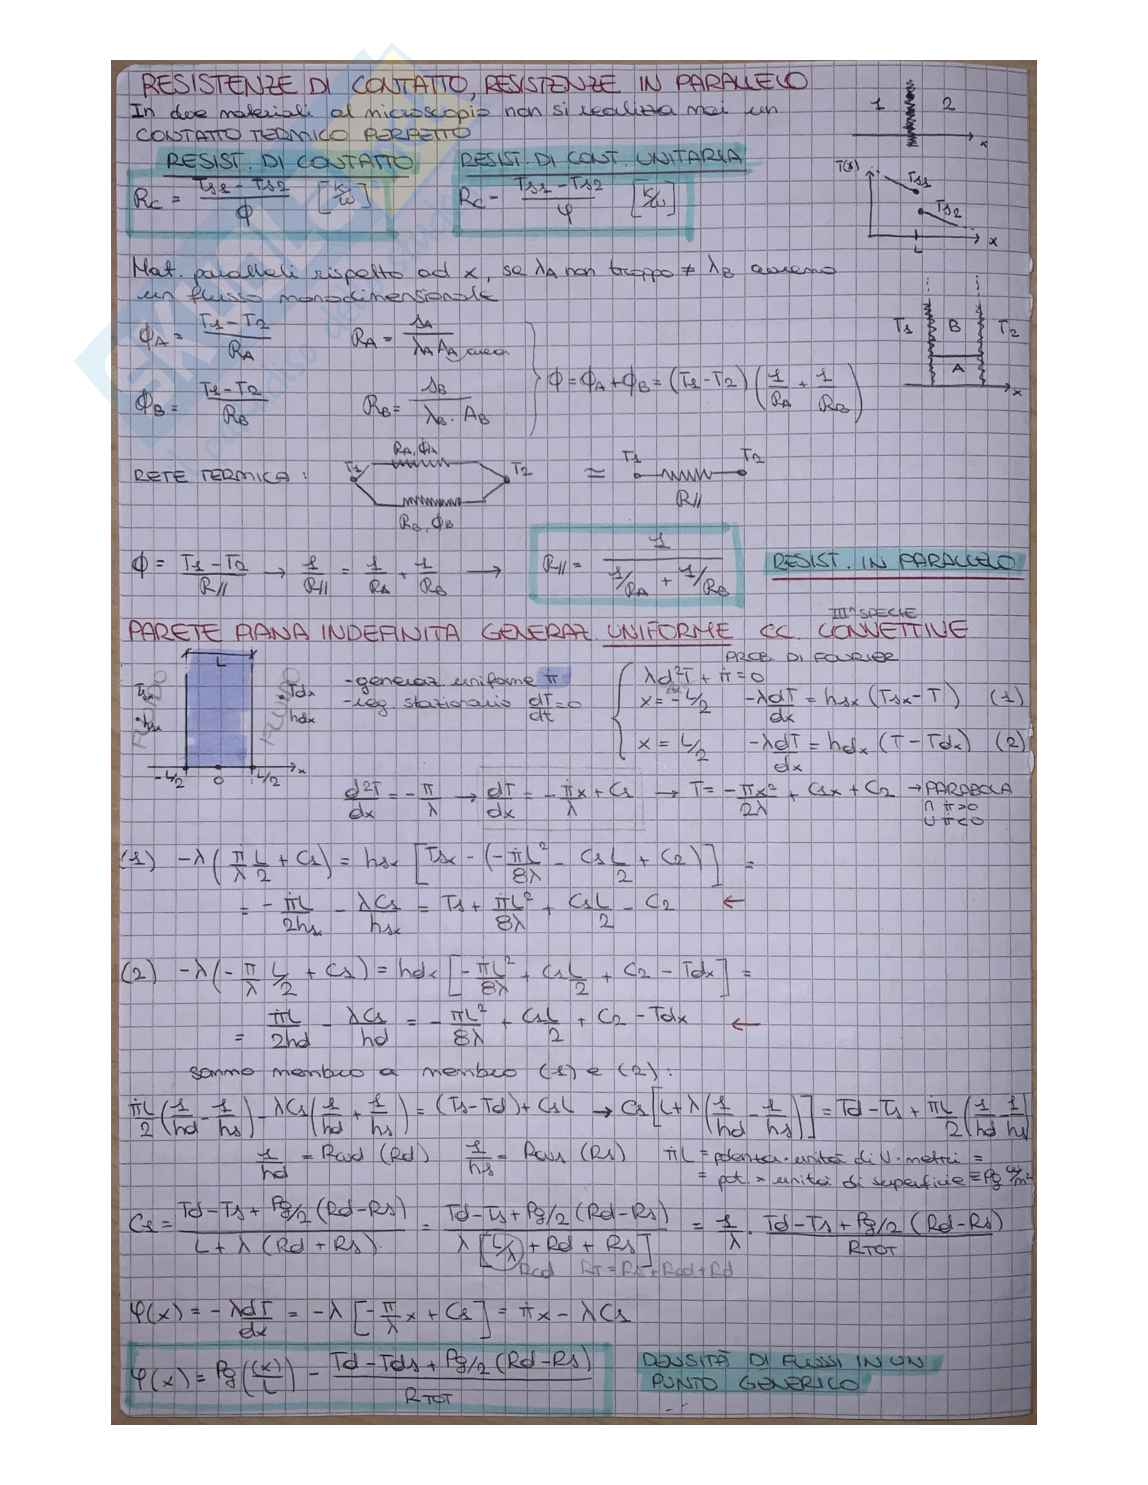 RESISTENZE DI CONTATTO, RESISTENZE IN PARALLELO
In due materiali al microscopio non si realizza mai un
CONTATTO TERMICO PERFETTO
1 2
x
RESIST. DI CONTATTO RESIST. DI CONT. UNITARIA
Rc = (Ts1 - Ts2)/ϕ [K/W] Rc = (Ts1 - Ts2)/φ [K/W]
T(x) Ts1
Ts2
L x
Mat. paralleli rispetto ad x, se λA non troppo ≠ λB avremo
un flusso monodimensionale
ϕA = (T1 - T2)/RA RA = sA/(λA AA) area
ϕB = (T1 - T2)/RB RB = sB/(λB · AB)
ϕ = ϕA + ϕB = (T1 - T2) (1/RA + 1/RB)
T1 B T2
A
x
RETE TERMICA: T1 RA, ϕA T2 ≃ T1 T2
RB, ϕB R//
ϕ = (T1 - T2)/R// → 1/R// = 1/RA + 1/RB → R// = 1/(1/RA + 1/RB) RESIST. IN PARALLELO
PARETE PIANA INDEFINITA GENERAZ. UNIFORME CC. CONVETTIVE IIIª SPECIE
PROB. DI FOURIER
L
Tsx hsx FLUIDO Tdx hdx FLUIDO
-L/2 0 L/2 x
- generaz uniforme π̇
- reg. stazionario dT/dt = 0
λd²T/dx² + π̇ = 0
x = -L/2 -λdT/dx = hsx (Tsx - T) (1)
x = L/2 -λdT/dx = hdx (T - Tdx) (2)
d²T/dx = -π̇/λ → dT/dx = -π̇x/λ + C1 → T = -π̇x²/2λ + C1x + C2 → PARABOLA
∩ π̇>0
∪ π̇<0
(1) -λ(π̇/λ L/2 + C1) = hsx [Tsx - (-π̇L²/8λ - C1L/2 + C2)] =
= -π̇L/2hsx - λC1/hsx = Ts + π̇L²/8λ + C1L/2 - C2 ←
(2) -λ(-π̇/λ L/2 + C1) = hdx [-π̇L²/8λ + C1L/2 + C2 - Tdx] =
= π̇L/2hd - λC1/hd = -π̇L²/8λ + C1L/2 + C2 - Tdx ←
sommo membro a membro (1) e (2):
π̇L/2 (1/hd - 1/hs) - λC1(1/hd + 1/hs) = (Ts - Td) + C1L → C1[L + λ(1/hd - 1/hs)] = Td - Ts + π̇L/2 (1/hd - 1/hs)
1/hd = Rcvd (Rd) 1/hs = Rcvs (Rs) π̇L = potenza · unità di V · metri =
= pot. · unità di superficie = Pg W/m²
C1 = (Td - Ts + Pg/2 (Rd - Rs))/(L + λ (Rd + Rs)) = (Td - Ts + Pg/2 (Rd - Rs))/(λ [L/λ + Rd + Rs]) = 1/λ · (Td - Ts + Pg/2 (Rd - Rs))/RTOT
Rcd RT = Rs + Rcd + Rd
φ(x) = -λdT/dx = -λ [-π̇/λ x + C1] = π̇x - λC1
φ(x) = Pg ((x)/L) - (Td - Tds + Pg/2 (Rd - Rs))/RTOT
DENSITÀ DI FLUSSI IN UN
PUNTO GENERICO